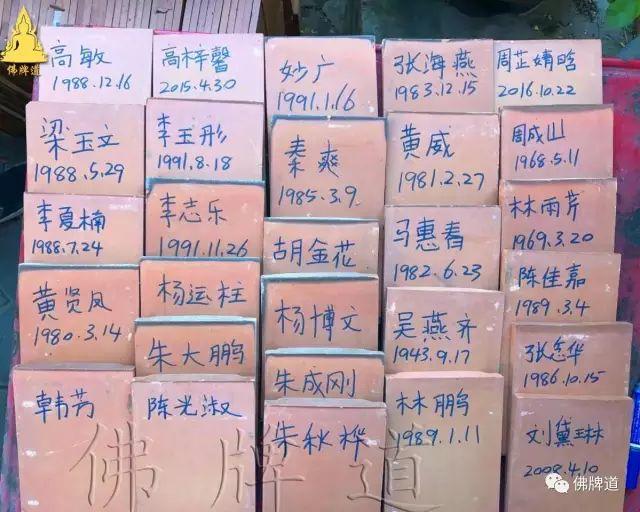 佛牌道
高敏
1988.12.16
高梓馨
2015.4.30
妙广
1991.1.16
张海燕
1983.12.15
周芷婧晗
2016.10.22
梁玉文
1988.5.29
李玉彤
1991.8.18
秦爽
1985.3.9
黄威
1981.2.27
周成山
1968.5.11
李夏楠
1988.7.24
李志乐
1991.11.26
胡金花
马惠春
1982.6.23
林雨芹
1969.3.20
黄贤凤
1980.3.14
杨运柱
杨博文
吴燕齐
1943.9.17
陈佳嘉
1989.3.4
朱大鹏
朱成刚
张
1986.10.15
韩芳
陈光淑
朱秋桦
林鹏
1989.1.11
刘黛琳
2008.4.10
佛牌道
佛牌道